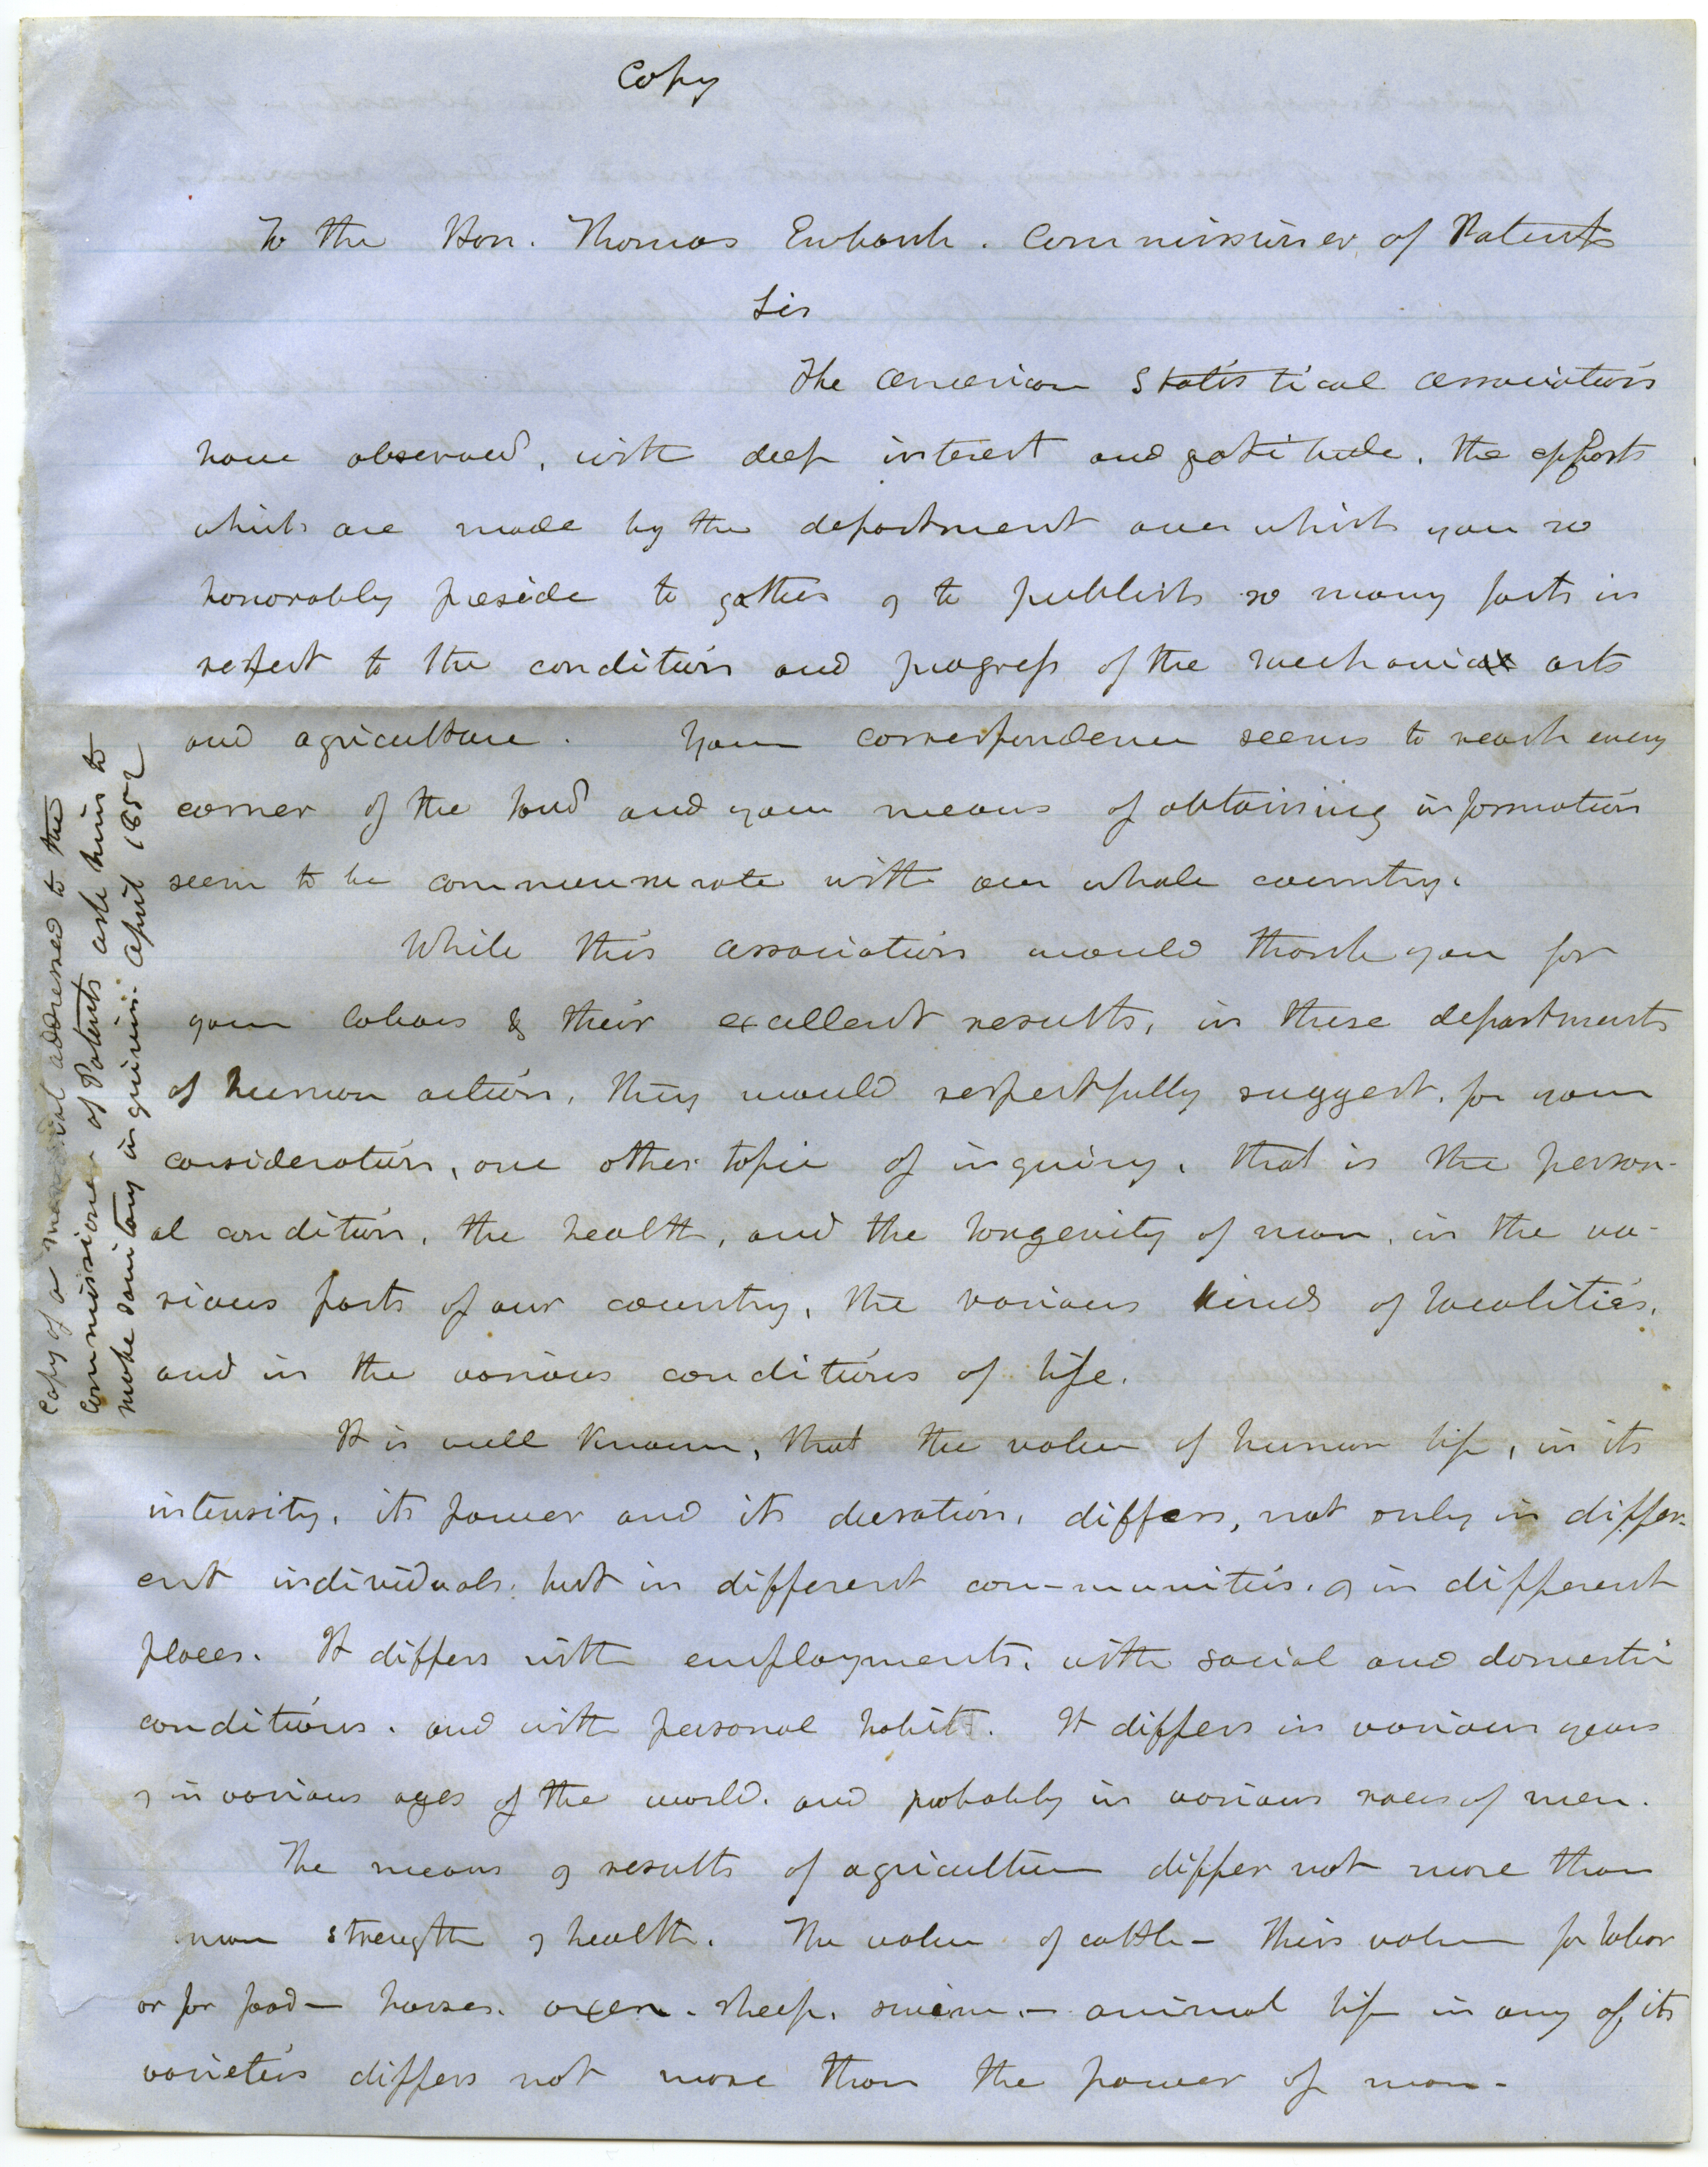 Copy
To the Hon. Thomas Ewbank. Commissioner of Patents
Sir
The American Statistical Association
have observed, with deep interest and gratitude, the efforts
which are made by the department over which you so
honorably preside to gather & to publish so many facts in
respect to the condition and progress of the mechanic arts
and agriculture. Your correspondence seems to reach every
corner of the land and your means of obtaining information
seem to be commensurate with our whole country.
While this association would thank you for
your labors & their excellent results, in these departments
of human action, they would respectfully suggest, for your
consideration, one other topic of inquiry, that is the person-
al condition, the health, and the longevity of man, in the va-
rious parts of our country, the various kinds of localities,
and in the various conditions of life.
It is well known, that the value of human life, in its
intensity, its power and its duration, differs, not only in differ-
ent individuals, but in different com-munities, & in different
places. It differs with employments, with social and domestic
conditions, and with personal habits. It differs in various years
& in various ages of the world, and probably in various races of men.
The means & results of agriculture differ not more than
man strength & health. The value of cattle - their value for labor
or for food - horses, oxen, sheep, swine, - animal life in any of its
varieties differs not more than the power of man.
Copy of a memorial addressed to the
Commissioner of Patents ask him to
make sanitary inquiries. April 1852